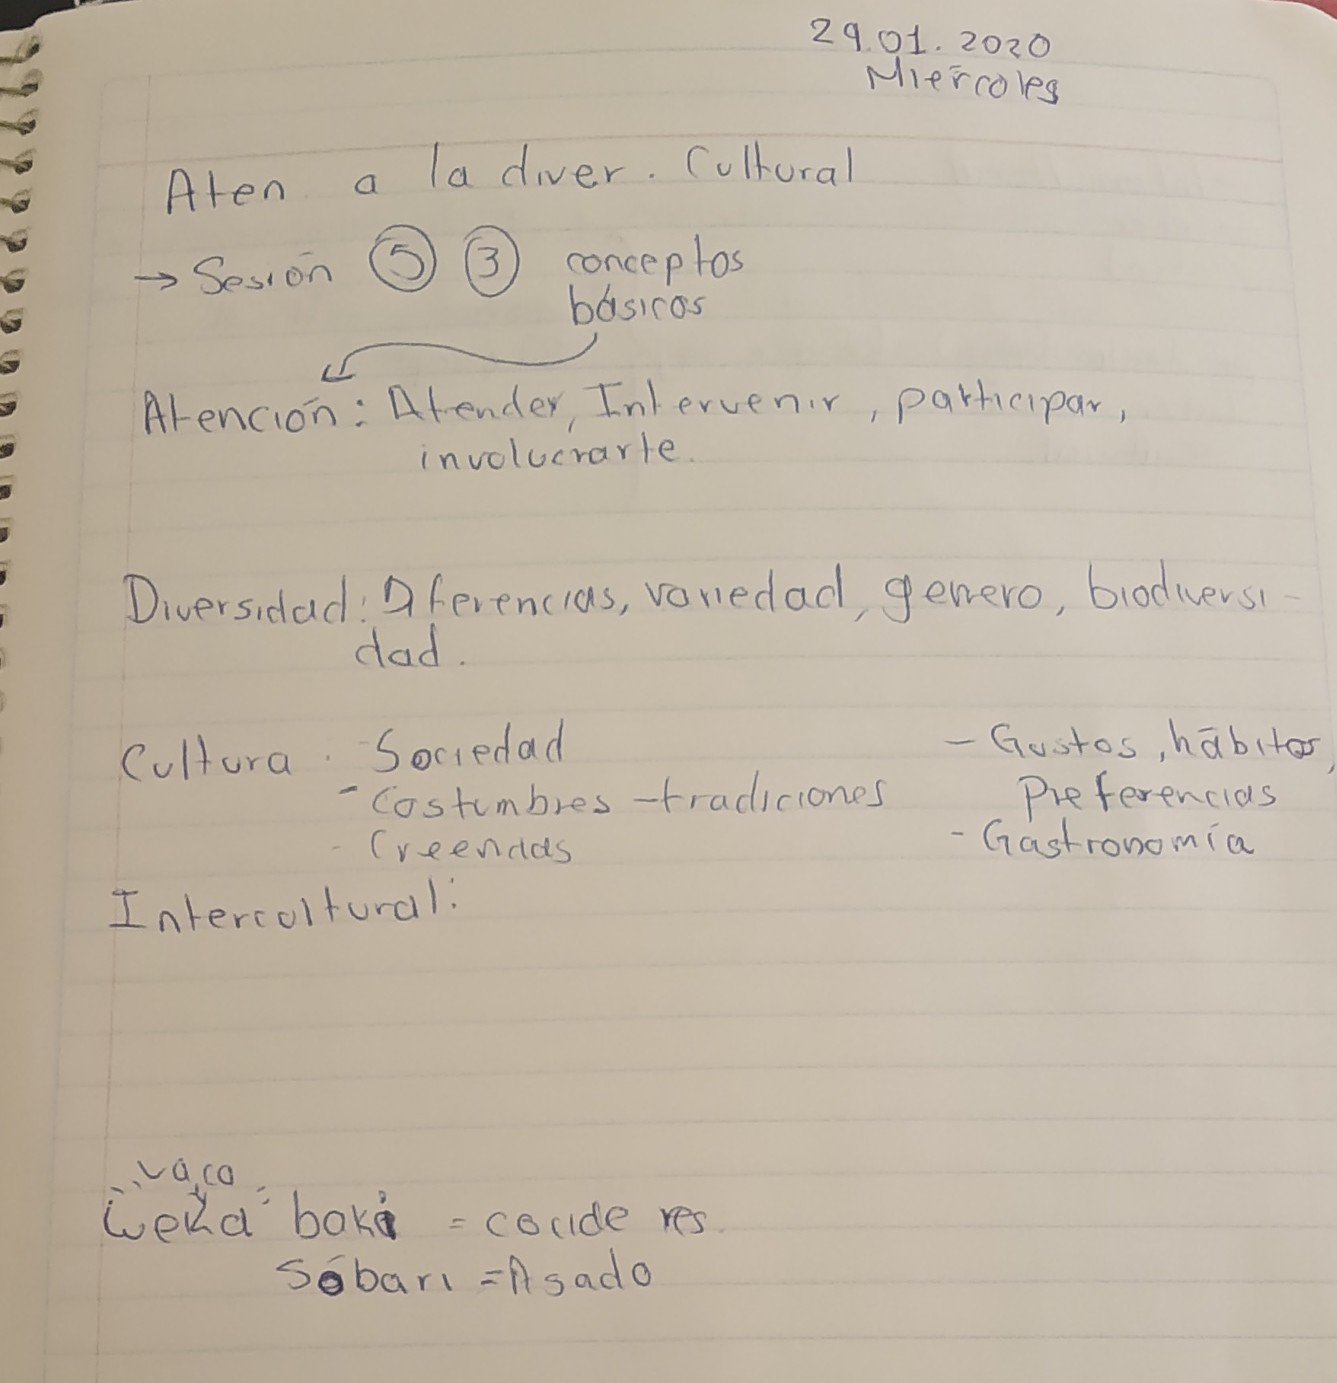 29.01.2020
Miércoles
Aten a la diver. Cultural
→ Sesión 5 3 conceptos
básicos
Atención: Atender, Intervenir, participar,
involucrarte.
Diversidad: Diferencias, variedad, genero, biodiversi-
dad.
Cultura. - Sociedad
- Costumbres - tradiciones
- Creencias
- Gustos, hábitos,
Preferencias
- Gastronomía
Intercultural:
vaca
baki = res.
Sóbari = Asado